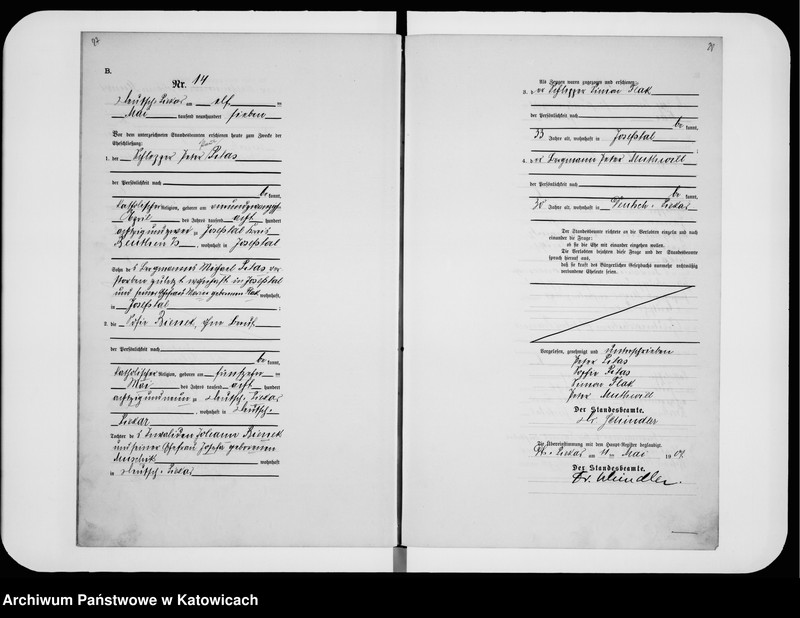 B.
Nr. 14
Deutsch-Piekar am elf ten
Mai tausend neunhundert sieben
Vor dem unterzeichneten Standesbeamten erschienen heute zum Zwecke der
Eheschließung:
1. der Schlepper Peter Petas
der Persönlichkeit nach
be kannt,
katholischer Religion, geboren am
April des Jahres tausend acht hundert
achtzig und zu Josefstal Kreis
Beuthen O/S, wohnhaft in Josefstal
Sohn des Bergmanns Michael Petas ver
storben zuletzt wohnhaft in Josefstal
und seiner Ehefrau Marie geborenen Flak wohnhaft
in Josefstal
2. die Sofie Bienek, ohne Beruf
der Persönlichkeit nach
be kannt,
katholischer Religion, geboren am fünfzehn ten
Mai des Jahres tausend acht hundert
achtzig und neun zu Deutsch-Piekar
, wohnhaft in Deutsch-
Piekar
Tochter des Invaliden Johann Bienek
und seiner Ehefrau Josefa geborenen
wohnhaft
in Deutsch-Piekar
Als Zeugen waren zugezogen und erschienen:
3. der Schlepper Simon Flak
der Persönlichkeit nach
be kannt,
33 Jahre alt, wohnhaft in Josefstal
4. der Bergmann Peter Muthwill
der Persönlichkeit nach
be kannt,
Jahre alt, wohnhaft in Deutsch-Piekar
Der Standesbeamte richtete an die Verlobten einzeln und nach
einander die Frage:
ob sie die Ehe mit einander eingehen wollen.
Die Verlobten bejahten diese Frage und der Standesbeamte
sprach hierauf aus,
daß sie kraft des Bürgerlichen Gesetzbuchs nunmehr rechtmäßig
verbundene Eheleute seien.
Vorgelesen, genehmigt und unterschrieben
Peter Petas
Sophie Petas
Simon Flak
Peter Muthwill
Der Standesbeamte.
Dr. Schindler
Die Übereinstimmung mit dem Haupt-Register beglaubigt.
Dt.-Piekar am 11 ten Mai 1907.
Der Standesbeamte.
Dr. Schindler.
Archiwum Państwowe w Katowicach